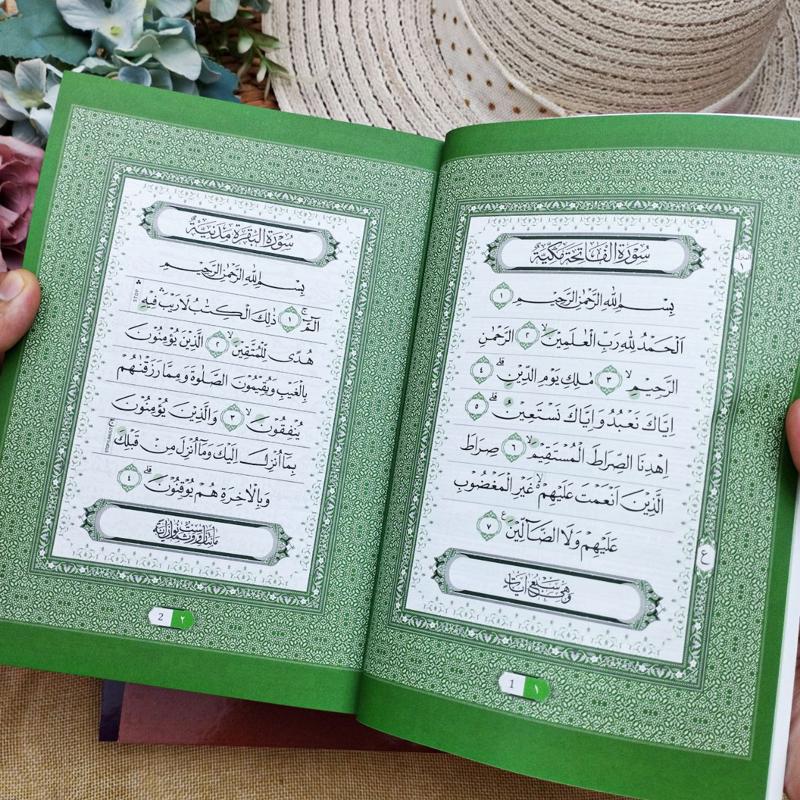 سُوْرَةُ الْفَاتِحَةِ مَكِّيَّةٌ
بِسْمِ اللّٰهِ الرَّحْمٰنِ الرَّحِيْمِ ١
اَلْحَمْدُ لِلّٰهِ رَبِّ الْعٰلَمِيْنَۙ ٢ الرَّحْمٰنِ
الرَّحِيْمِۙ ٣ مٰلِكِ يَوْمِ الدِّيْنِۗ ٤
اِيَّاكَ نَعْبُدُ وَاِيَّاكَ نَسْتَعِيْنُۗ ٥
اِهْدِنَا الصِّرَاطَ الْمُسْتَقِيْمَۙ ٦ صِرَاطَ
الَّذِيْنَ اَنْعَمْتَ عَلَيْهِمْ ەۙ غَيْرِ الْمَغْضُوْبِ
عَلَيْهِمْ وَلَا الضَّاۤلِّيْنَ ࣖ ٧
وَهِيَ سَبْعُ اٰيَاتٍ
ع
1 ١
سُوْرَةُ الْبَقَرَةِ مَدَنِيَّةٌ
بِسْمِ اللّٰهِ الرَّحْمٰنِ الرَّحِيْمِ
الۤمّۤۚ ١ ذٰلِكَ الْكِتٰبُ لَا رَيْبَۛ فِيْهِۛ
هُدًى لِّلْمُتَّقِيْنَۙ ٢ الَّذِيْنَ يُؤْمِنُوْنَ
بِالْغَيْبِ وَيُقِيْمُوْنَ الصَّلٰوةَ وَمِمَّا رَزَقْنٰهُمْ
يُنْفِقُوْنَۙ ٣ وَالَّذِيْنَ يُؤْمِنُوْنَ
بِمَآ اُنْزِلَ اِلَيْكَ وَمَآ اُنْزِلَ مِنْ قَبْلِكَ
وَبِالْاٰخِرَةِ هُمْ يُوْقِنُوْنَۗ ٤
2 ٢